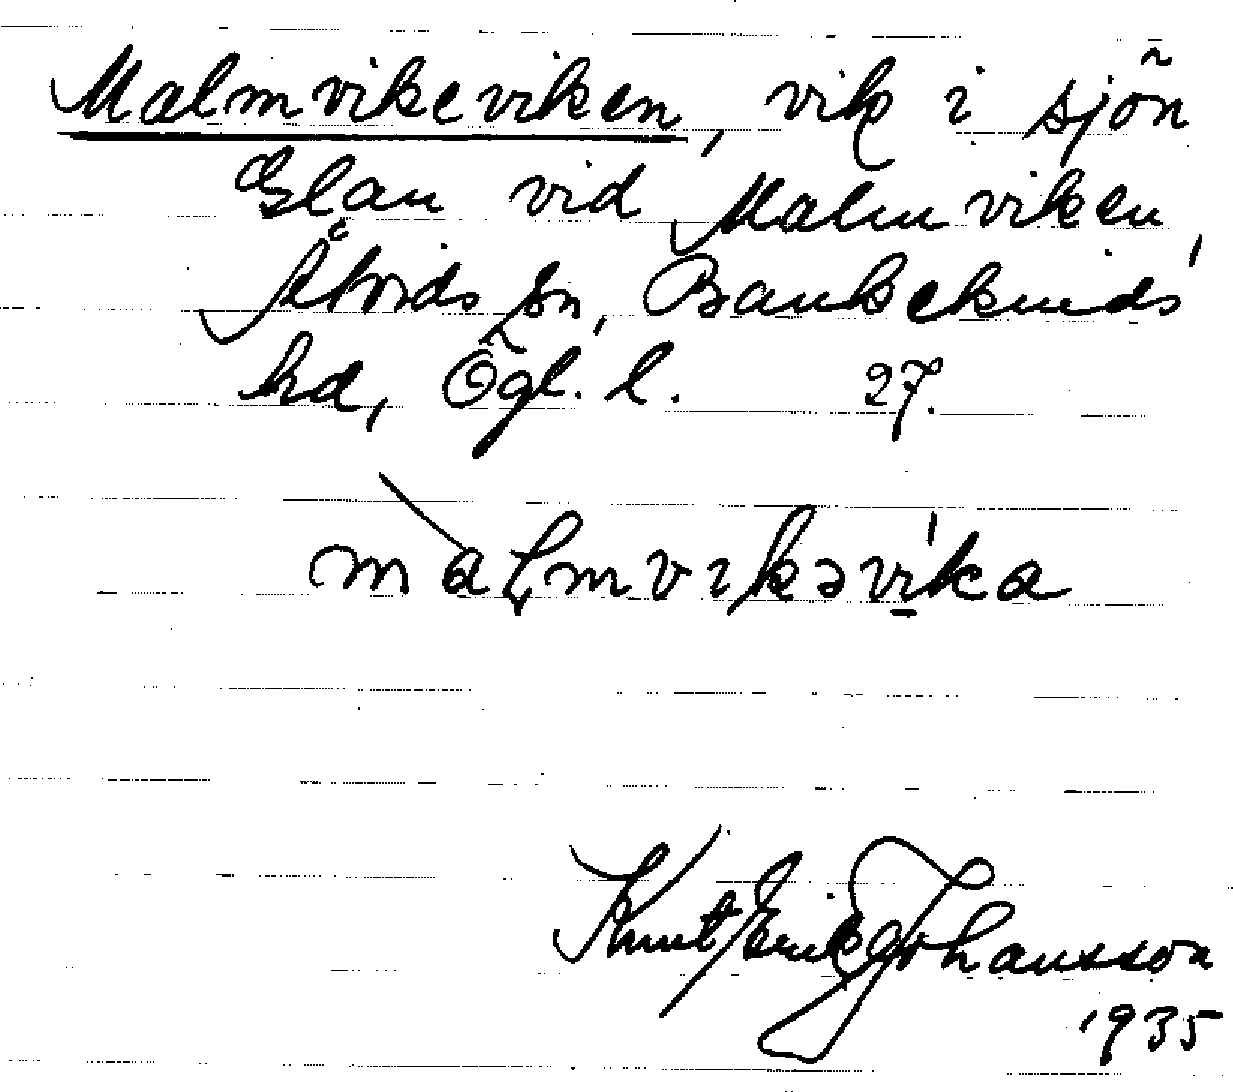 Malmvikeviken, vik i sjön
Glan vid Malmviken,
Åtvids sn, Bankekinds
hd, Ögl. l. 27.
màɫmvikəvi̠ka
Knut Erik Johansson
1935